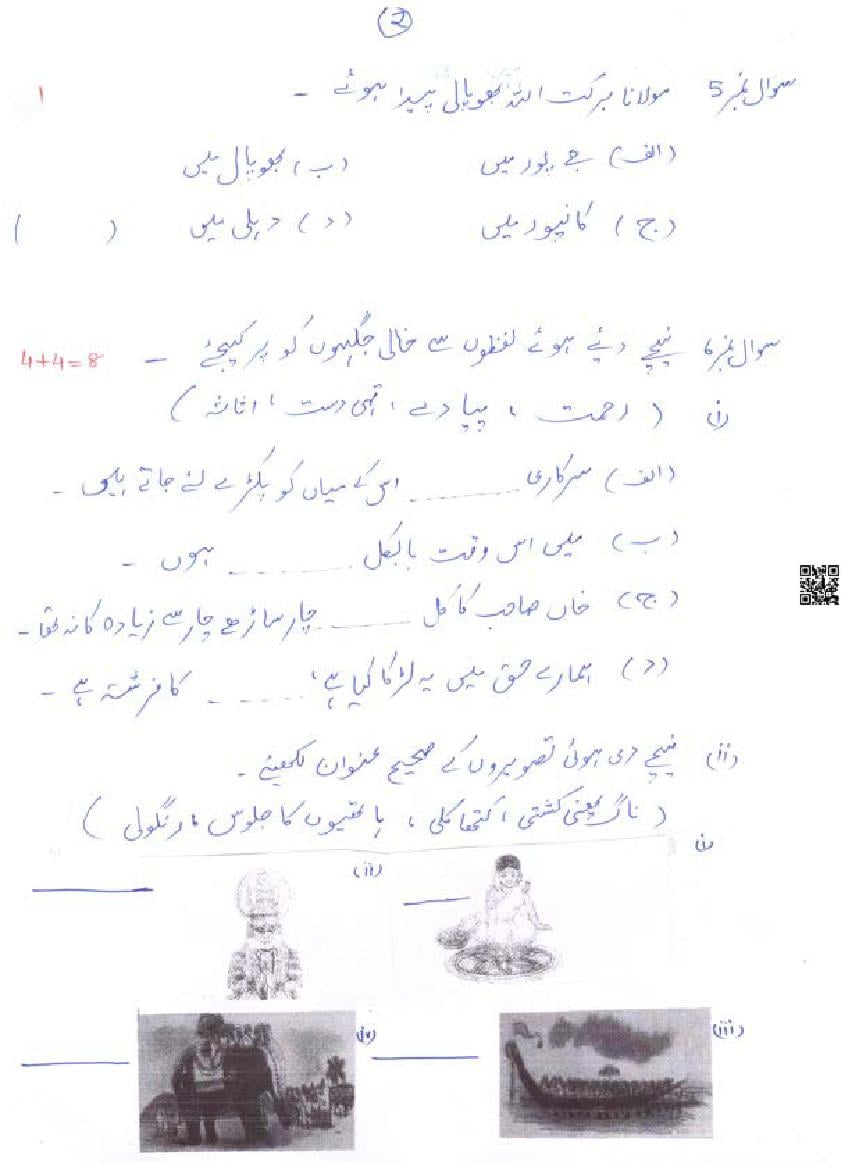 (2)
سوال نمبر 5 مولانا برکت اللہ بھوپالی پیدا ہوئے - 1
(الف) جے پور میں (ب) بھوپال میں
(ج) کانپور میں (د) دہلی میں ( )
سوال نمبر 6 نیچے دیئے ہوئے لفظوں سے خالی جگہوں کو پر کیجئے - 4+4=8
(i) ( رحمت ، پیادے ، تہی دست ، اثاثہ )
(الف) سرکاری ........ اس کے میاں کو پکڑے لئے جاتے ہیں -
(ب) میں اس وقت بالکل ........ ہوں -
(ج) خاں صاحب کا کل ........ چار ساڑھے چار سے زیادہ کا نہ تھا -
(د) ہمارے حق میں یہ لڑکا کیا ہے، ........ کا فرشتہ ہے -
(ii) نیچے دی ہوئی تصویروں کے صحیح عنوان لکھیئے -
( ناگ پھنی کشتی ، کتھا کلی ، ہاتھیوں کا جلوس ، رنگولی )
(i)
(ii)
(iii)
(iv)